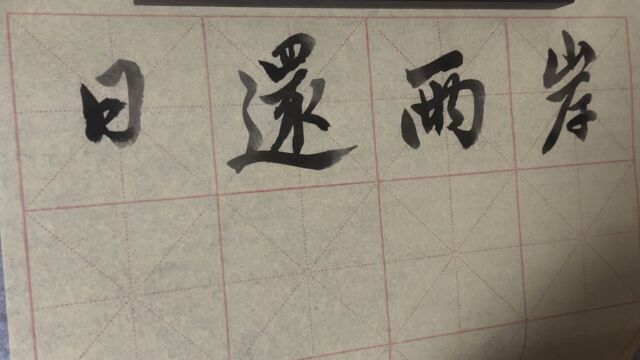 日還兩岸